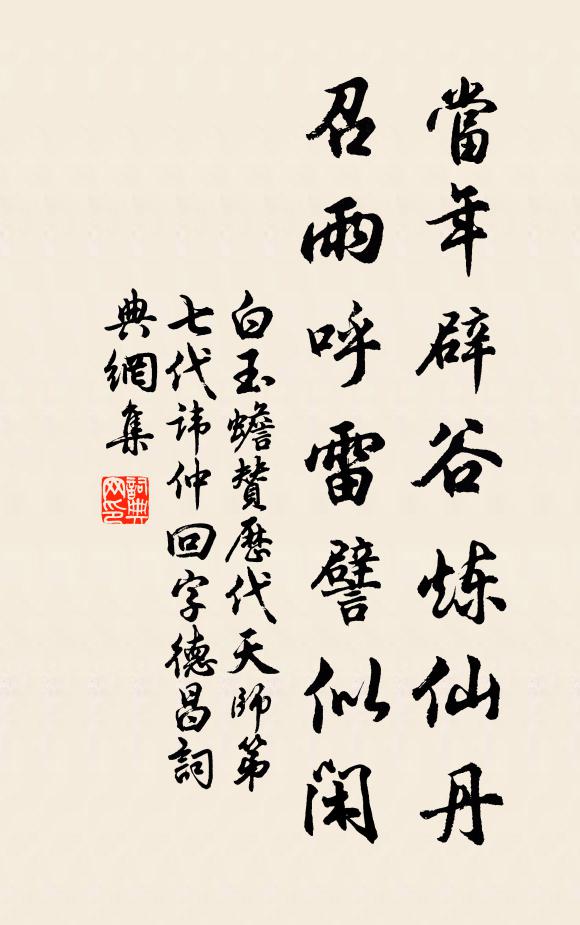 當年辟谷炼仙丹
召雨呼雷譬似閑
白玉蟾贊歷代天師第
七代諱仲回字德昌詞
典網集
詞典
网印